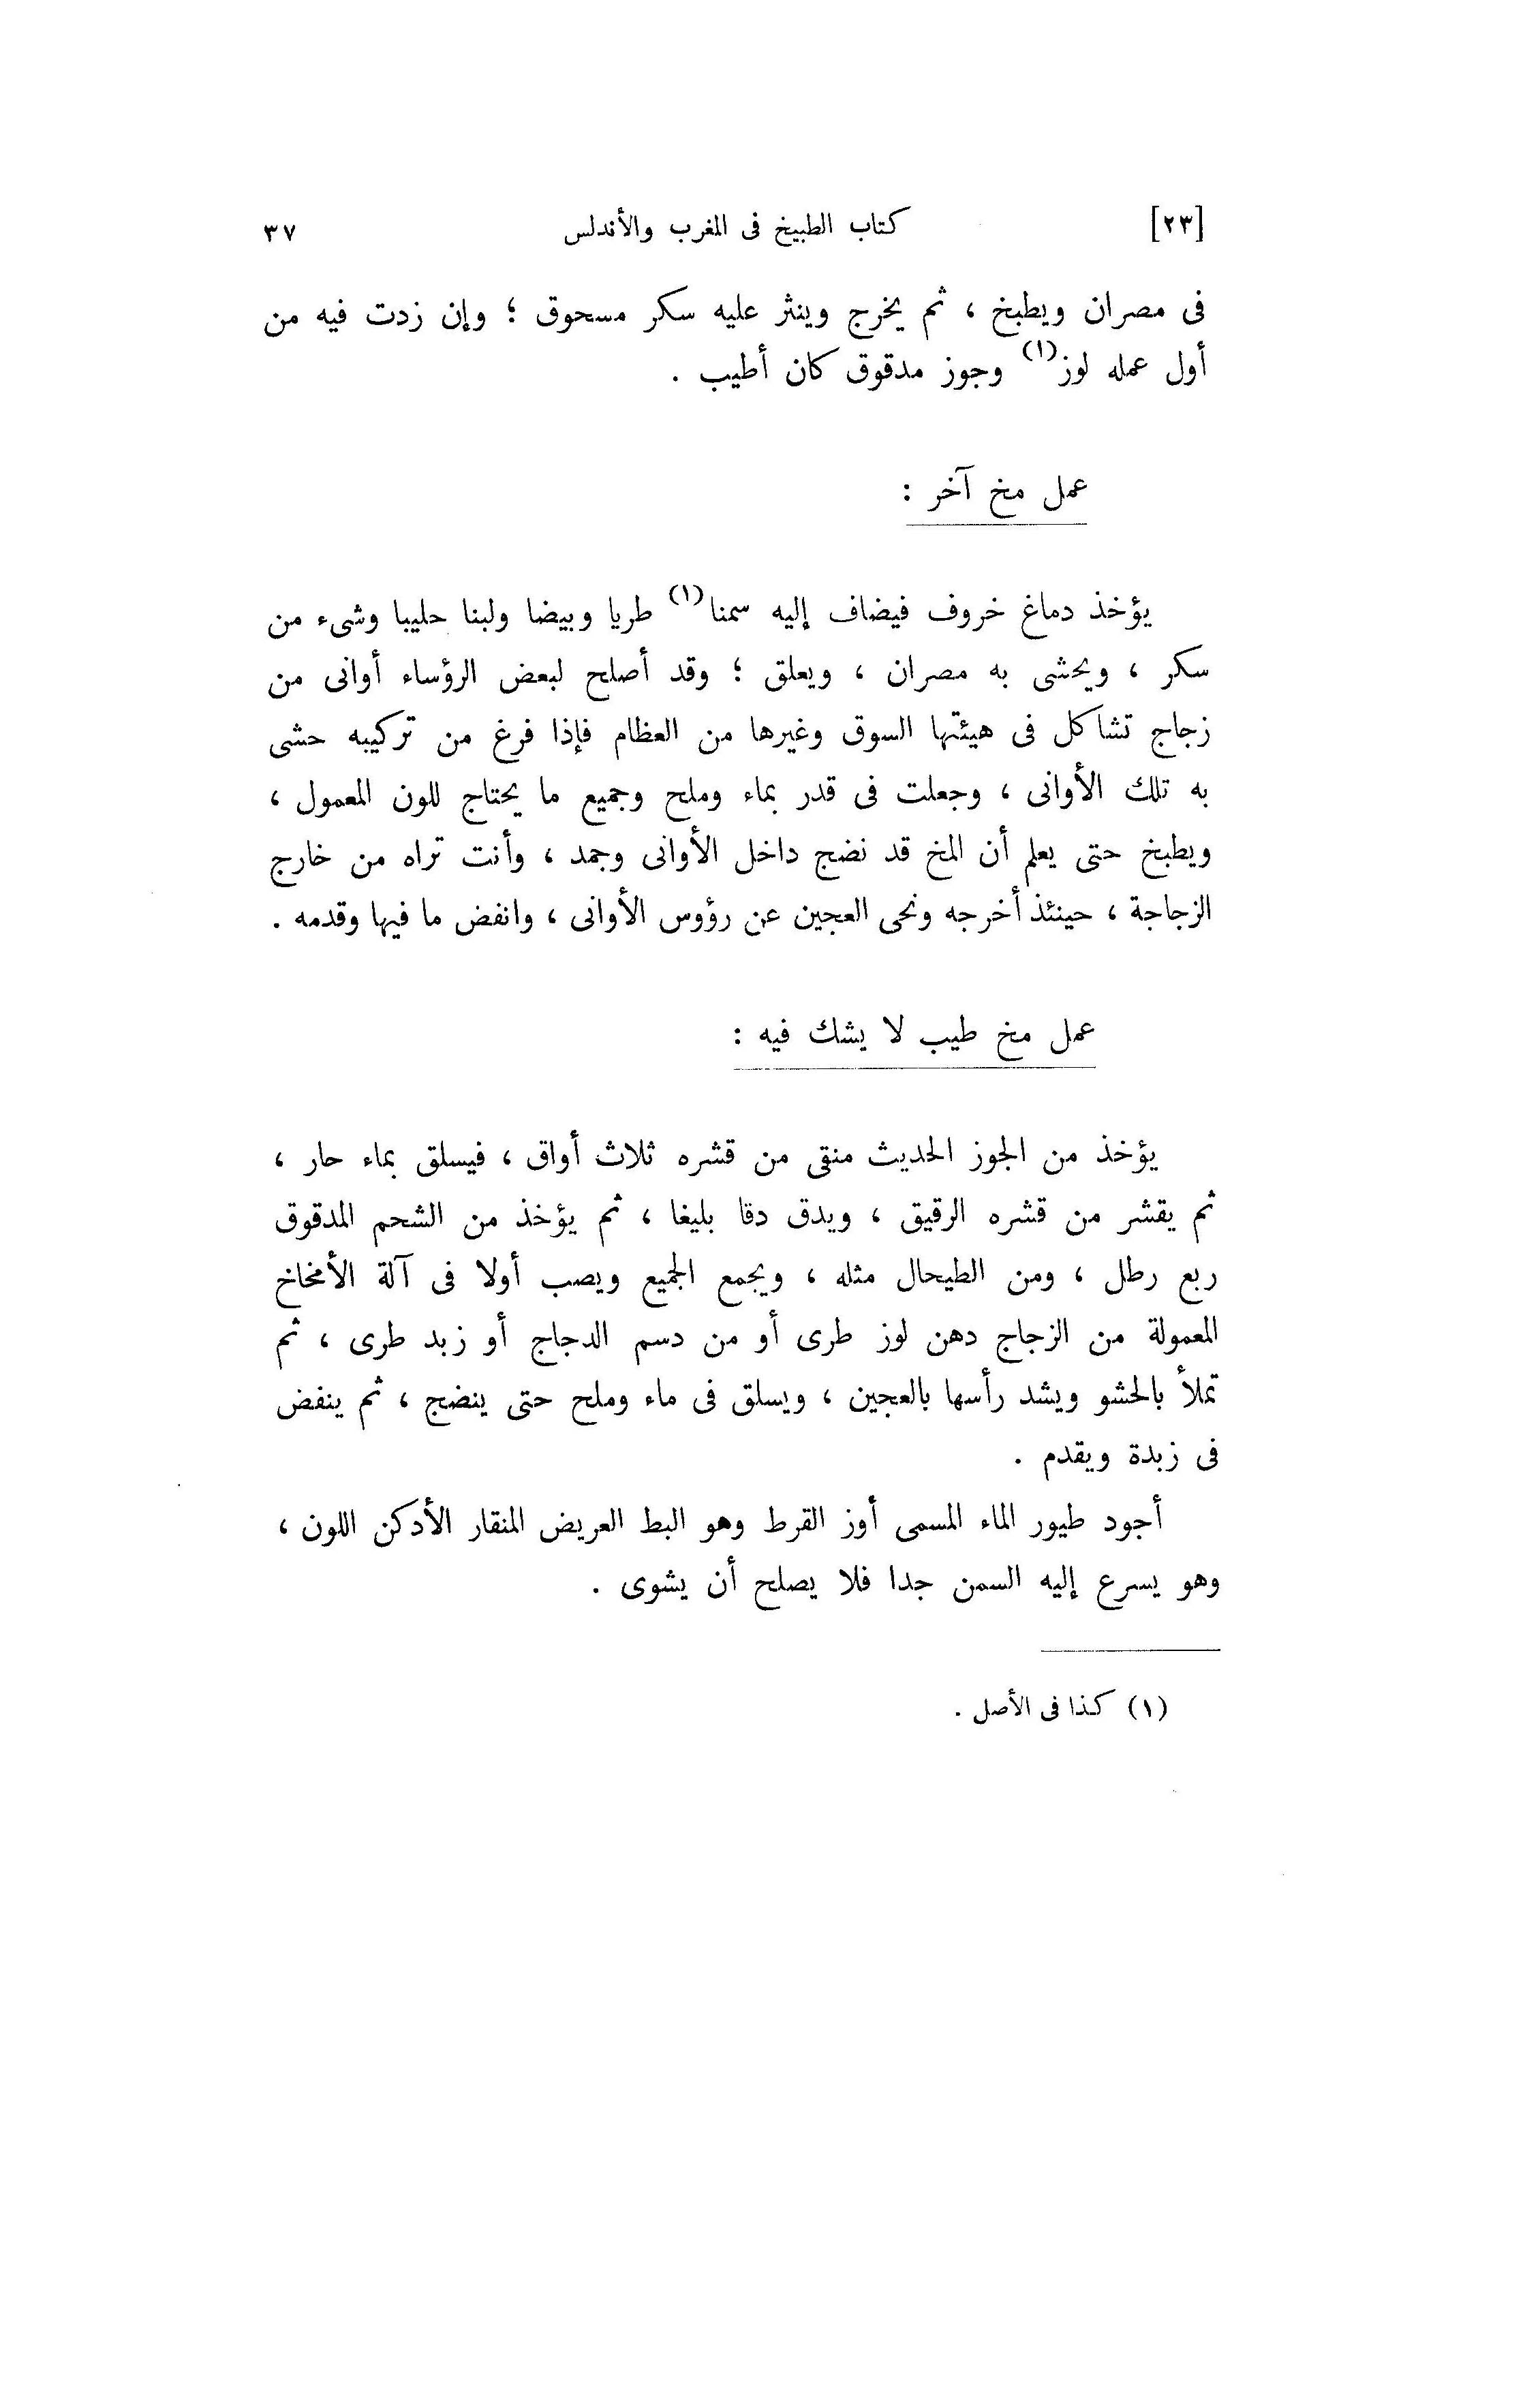 [٢٣] كتاب الطبيخ فى المغرب والأندلس ٣٧
فى مصران ويطبخ ، ثم يخرج وينثر عليه سكر مسحوق ؛ وإن زدت فيه من
أول عمله لوز(١) وجوز مدقوق كان أطيب .
عمل مخ آخر :
يؤخذ دماغ خروف فيضاف إليه سمنا(١) طريا وبيضا ولبنا حليبا وشىء من
سكر ، ويحشى به مصران ، ويعلق ؛ وقد أصلح لبعض الرؤساء أوانى من
زجاج تشاكل فى هيئتها السوق وغيرها من العظام فإذا فرغ من تركيبه حشى
به تلك الأوانى ، وجعلت فى قدر بماء وملح وجميع ما يحتاج للون المعمول ،
ويطبخ حتى يعلم أن المخ قد نضج داخل الأوانى وجمد ، وأنت تراه من خارج
الزجاجة ، حينئذ أخرجه ونحى العجين عن رؤوس الأوانى ، وانفض ما فيها وقدمه .
عمل مخ طيب لا يشك فيه :
يؤخذ من الجوز الحديث منقى من قشره ثلاث أواق ، فيسلق بماء حار ،
ثم يقشر من قشره الرقيق ، ويدق دقا بليغا ، ثم يؤخذ من الشحم المدقوق
ربع رطل ، ومن الطيحال مثله ، ويجمع الجميع ويصب أولا فى آلة الأمخاخ
المعمولة من الزجاج دهن لوز طرى أو من دسم الدجاج أو زبد طرى ، ثم
تملأ بالحشو ويشد رأسها بالعجين ، ويسلق فى ماء وملح حتى ينضج ، ثم ينفض
فى زبدة ويقدم .
أجود طيور الماء المسمى أوز القرط وهو البط العريض المنقار الأدكن اللون ،
وهو يسرع إليه السمن جدا فلا يصلح أن يشوى .
(١) كذا فى الأصل .